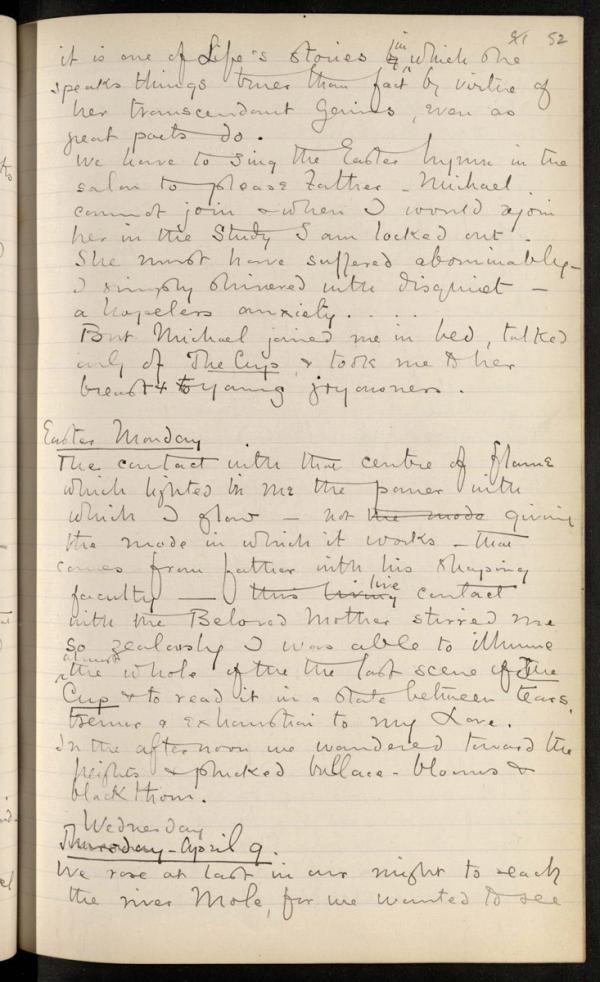 52
it is one of Life's stories in which she
speaks things truer than fact by virtue of
her transcendant Genius, even as
great poets do.
We have to sing the Easter hymn in the
salon to please Father - Michael
cannot join & when I would rejoin
her in the Study I am locked out.
She must have suffered abominably -
I simply shivered with disquiet -
a hopeless anxiety. . . .
But Michael joined me in bed, talked
only of The Cup & took me to her
breast & to young joyousness.
Easter Monday
The contact with that centre of flame
which lighted in me the power with
which I glow - not the mode giving
the mode in which it works - that
comes from father with his shaping
faculty - this living live contact
with the Beloved Mother stirred me
so zealously I was able to illume
almost the whole of the the last scene of The
Cup & to read it in a state between tears,
tremor & exhaustion to my Love.
In the afternoon we wandered toward the
heights & plucked bullace-blooms &
blackthorn.
Wednesday
Thursday - April 9.
We rose at last in our might to reach
the river Mole, for we wanted to see